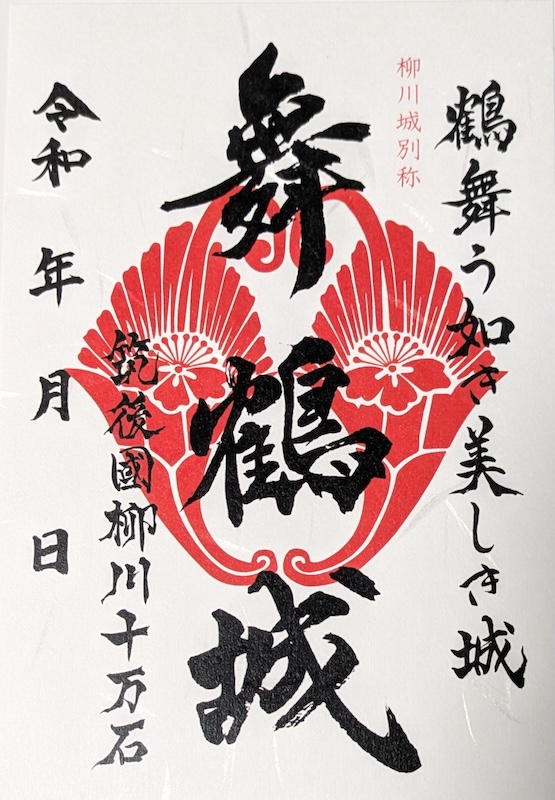 鶴舞う如き美しき城
柳川城別称
舞鶴城
筑後國柳川十万石
令和 年 月 日